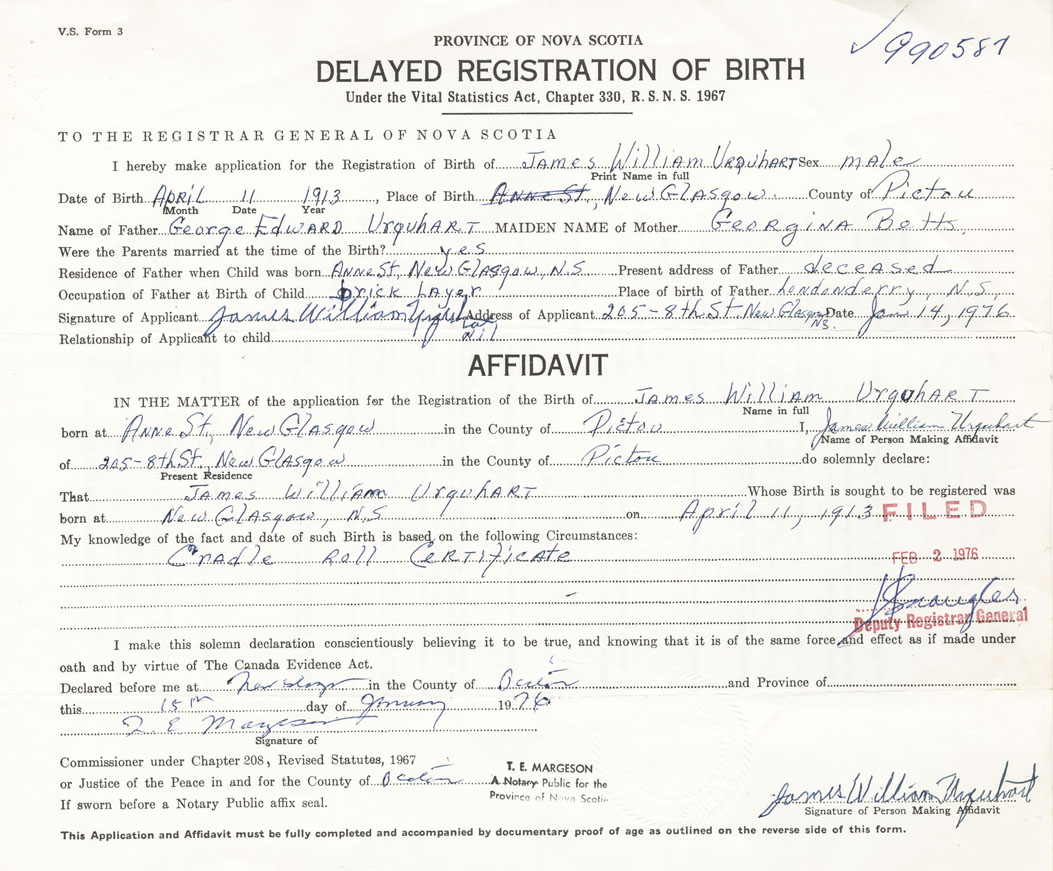 V.S. Form 3
PROVINCE OF NOVA SCOTIA
✓990587
DELAYED REGISTRATION OF BIRTH
Under the Vital Statistics Act, Chapter 330, R.S.N.S. 1967
TO THE REGISTRAR GENERAL OF NOVA SCOTIA
I hereby make application for the Registration of Birth of James William Urquhart Sex male
Print Name in full
Date of Birth April 11 1913, Place of Birth Anne St, New Glasgow County of Pictou
Month Date Year
Name of Father George Edward Urquhart MAIDEN NAME of Mother Georgina Betts
Were the Parents married at the time of the Birth? yes
Residence of Father when Child was born Anne St, New Glasgow, N.S. Present address of Father deceased
Occupation of Father at Birth of Child brick Layer Place of birth of Father Londonderry, N.S.
Signature of Applicant James William Urquhart Address of Applicant 205-8th St. New Glasgow N.S. Date Jan 14, 1976
Relationship of Applicant to child
AFFIDAVIT
IN THE MATTER of the application for the Registration of the Birth of James William Urquhart
Name in full
born at Anne St, New Glasgow in the County of Pictou I, James William Urquhart
Name of Person Making Affidavit
of 205-8th St, New Glasgow in the County of Pictou do solemnly declare:
Present Residence
That James William Urquhart Whose Birth is sought to be registered was
born at New Glasgow, N.S on April 11, 1913 FILED
My knowledge of the fact and date of such Birth is based on the following Circumstances:
Cradle Roll Certificate FEB 2 1976
Deputy Registrar General
I make this solemn declaration conscientiously believing it to be true, and knowing that it is of the same force and effect as if made under
oath and by virtue of The Canada Evidence Act.
Declared before me at New Glasgow in the County of Pictou and Province of
this 15th day of January 1976
T. E. Margeson
Signature of
Commissioner under Chapter 208, Revised Statutes, 1967
or Justice of the Peace in and for the County of Pictou
If sworn before a Notary Public affix seal.
T. E. MARGESON
A Notary Public for the
Province of Nova Scotia
James William Urquhart
Signature of Person Making Affidavit
This Application and Affidavit must be fully completed and accompanied by documentary proof of age as outlined on the reverse side of this form.